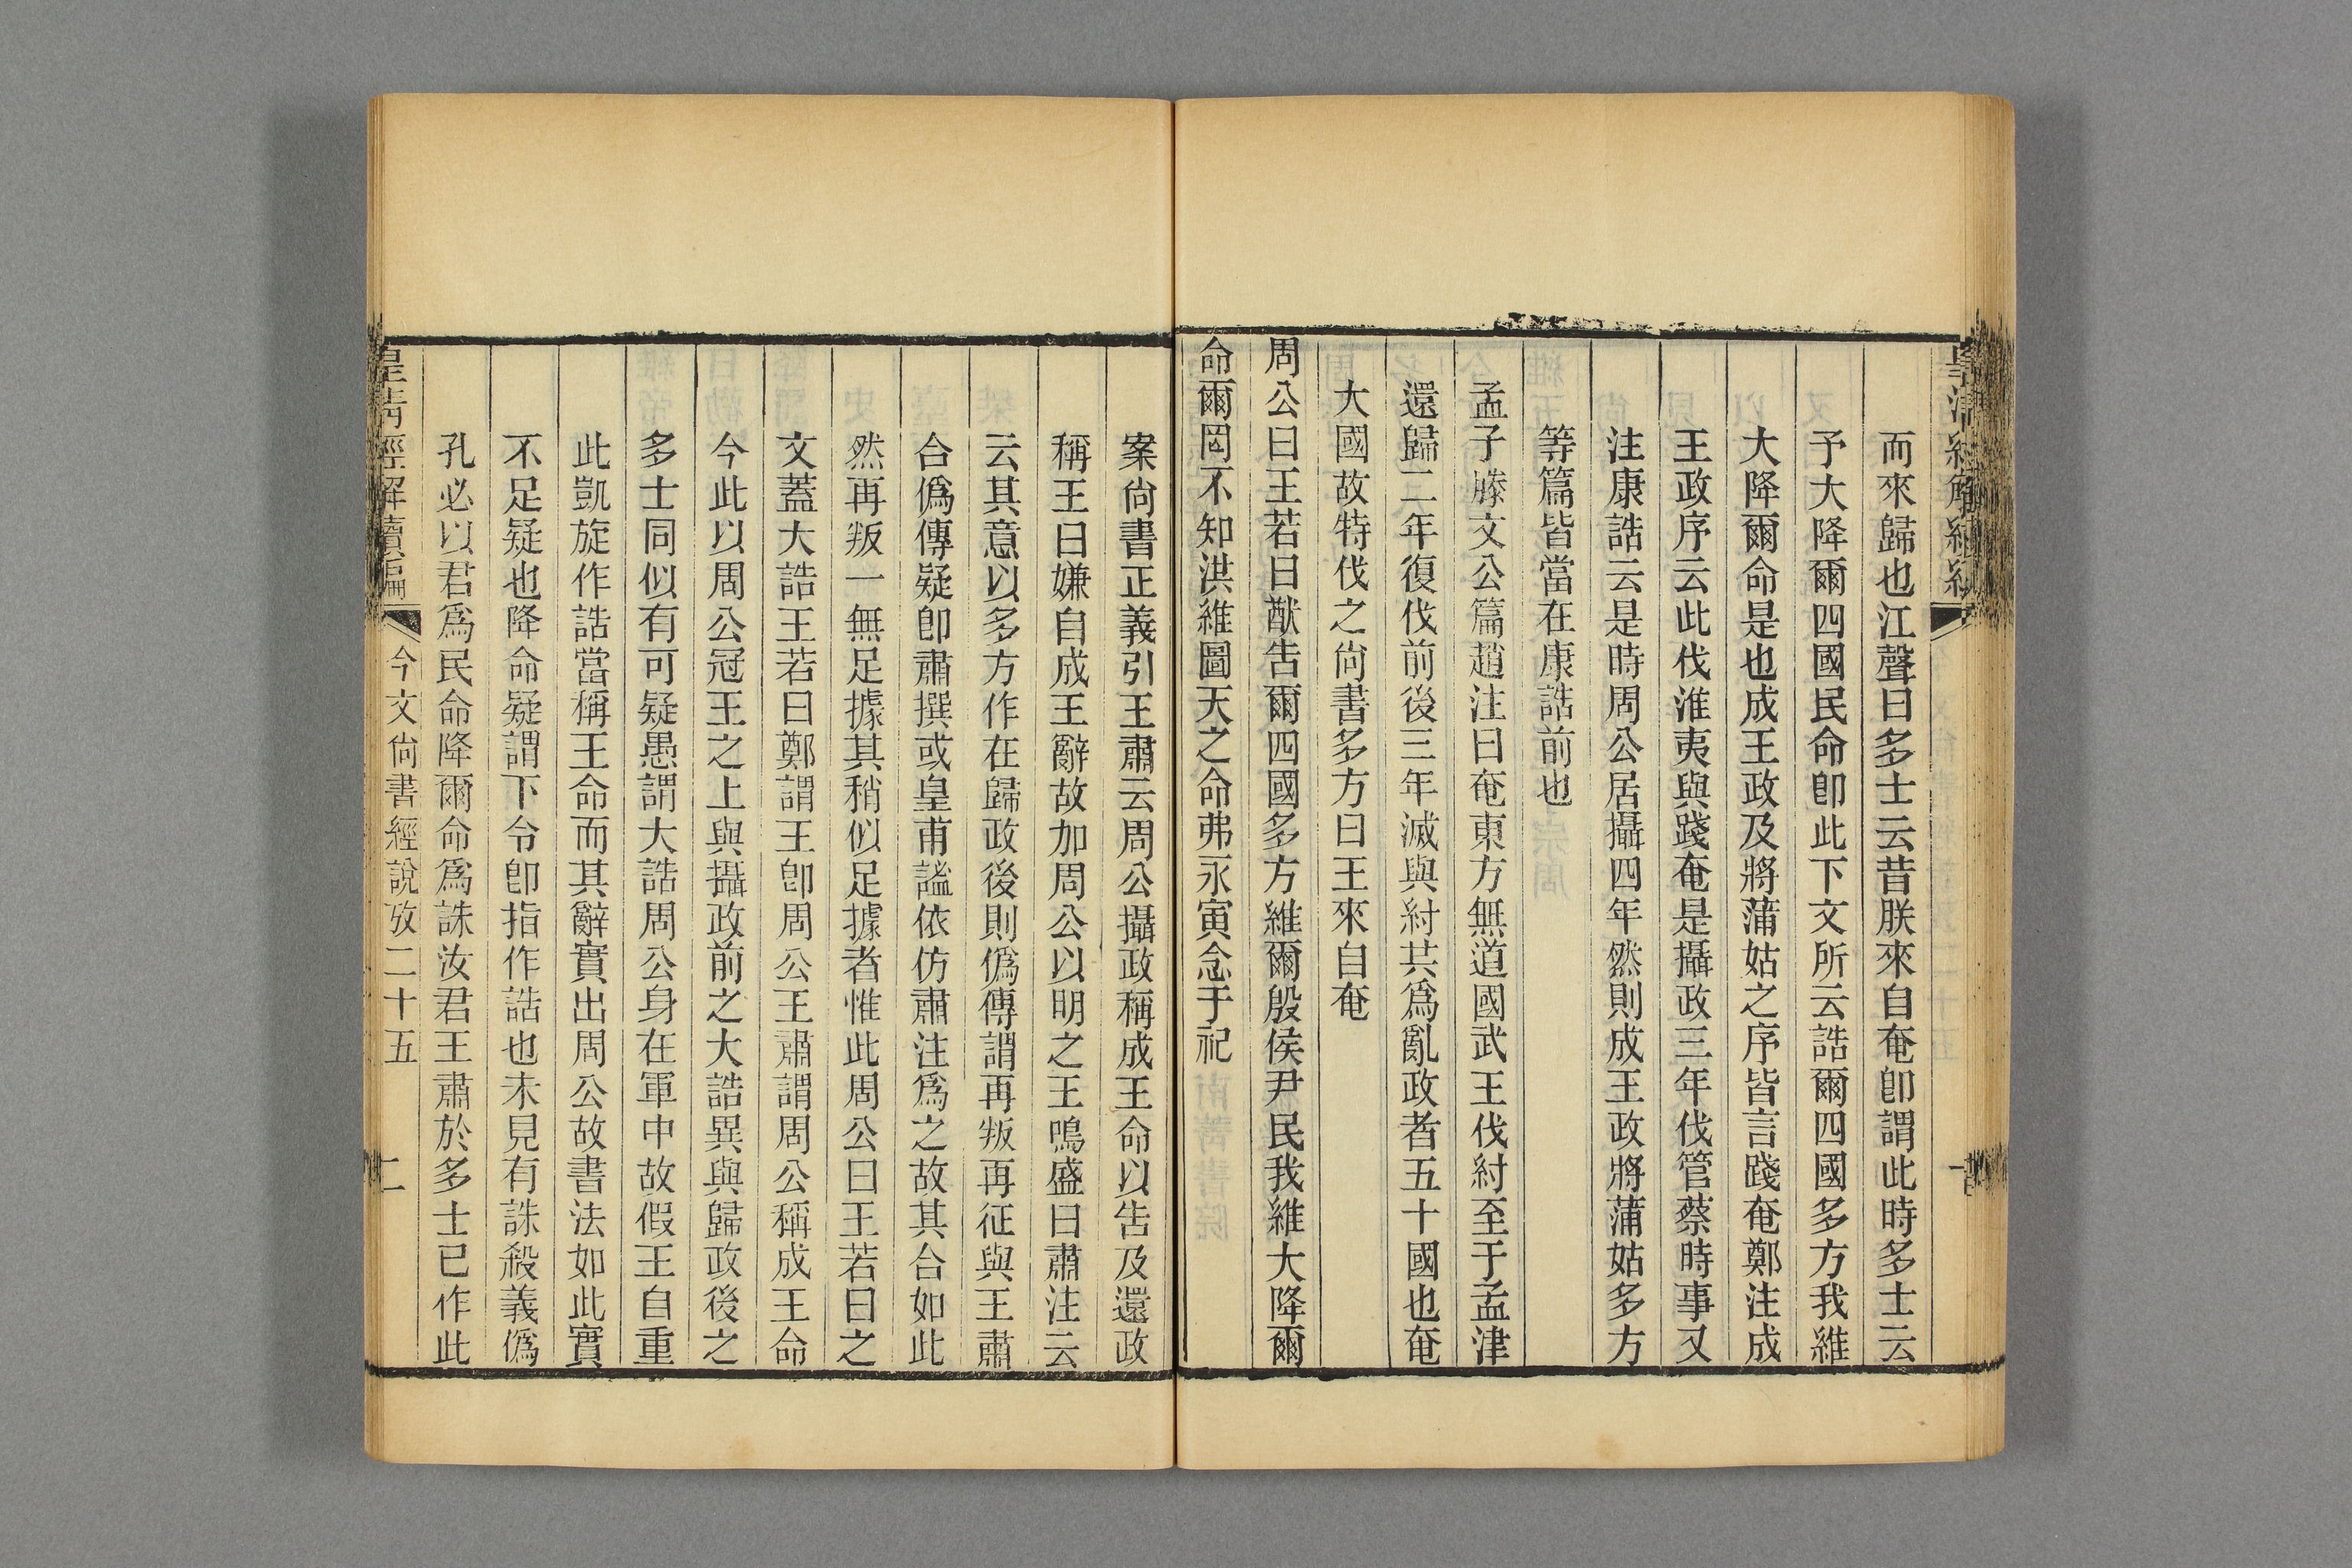 而來歸也江聲曰多士云昔朕來自奄卽謂此時多士云
予大降爾四國民命卽此下文所云誥爾四國多方我維
大降爾命是也成王政及將蒲姑之序皆言踐奄鄭注成
王政序云此伐淮夷與踐奄是攝政三年伐管蔡時事又
注康誥云是時周公居攝四年然則成王政將蒲姑多方
等篇皆當在康誥前也
孟子滕文公篇趙注曰奄東方無道國武王伐紂至于孟津
還歸二年復伐前後三年滅與紂共爲亂政者五十國也奄
大國故特伐之尙書多方曰王來自奄
周公曰王若曰猷告爾四國多方維爾殷侯尹民我維大降爾
命爾罔不知洪維圖天之命弗永寅念于祀
案尙書正義引王肅云周公攝政稱成王命以告及還政
稱王曰嫌自成王辭故加周公以明之王鳴盛曰肅注云
云其意以多方作在歸政後則僞傳謂再叛再征與王肅
合僞傳疑卽肅撰或皇甫謐依仿肅注爲之故其合如此
然再叛一無足據其稍似足據者惟此周公曰王若曰之
文蓋大誥王若曰鄭謂王卽周公王肅謂周公稱成王命
今此以周公冠王之上與攝政前之大誥異與歸政後之
多士同似有可疑愚謂大誥周公身在軍中故假王自重
此凱旋作誥當稱王命而其辭實出周公故書法如此實
不足疑也降命疑謂下令卽指作誥也未見有誅殺義僞
孔必以君爲民命降爾命爲誅汝君王肅於多士已作此
皇淸經解續編 今文尙書經說攷二十五 二